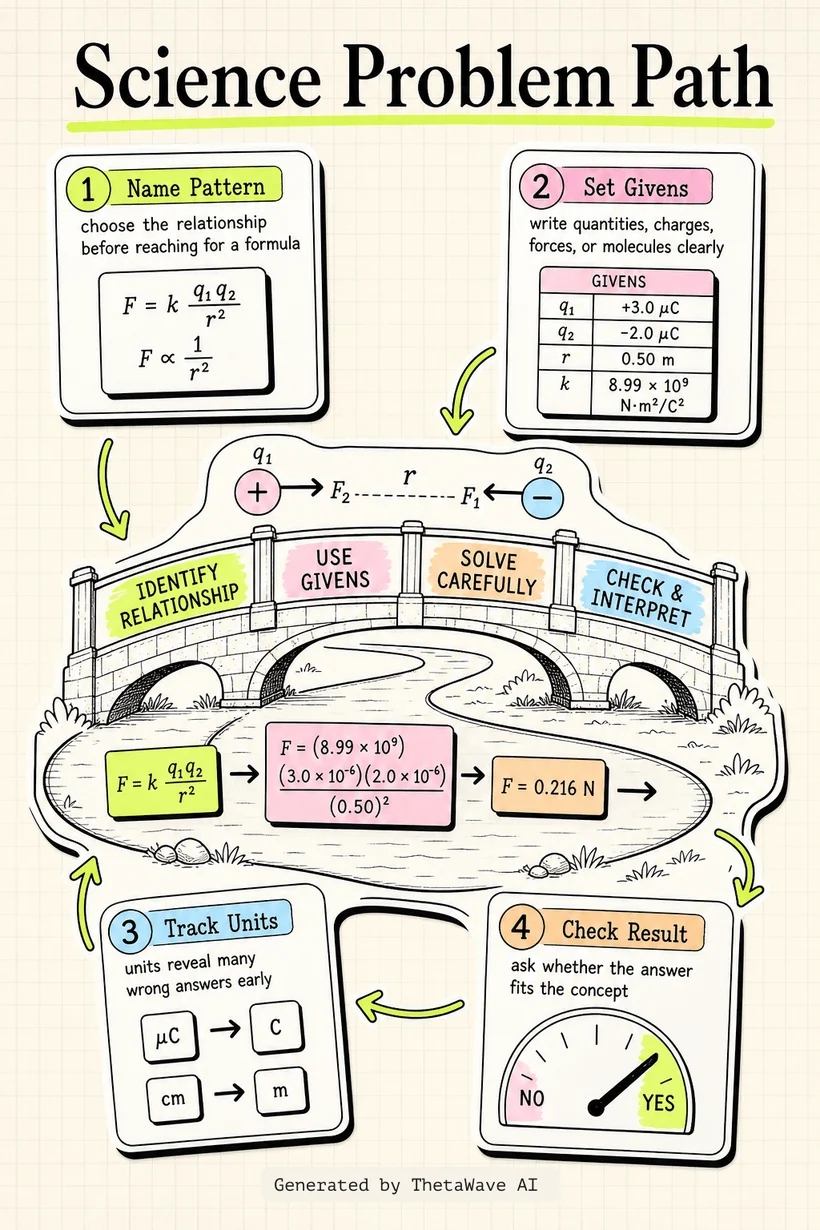 Science Problem Path
1 Name Pattern
choose the relationship
before reaching for a formula
F = k q₁q₂ / r²
F ∝ 1 / r²
2 Set Givens
write quantities, charges,
forces, or molecules clearly
GIVENS
q₁ +3.0 µC
q₂ −2.0 µC
r 0.50 m
k 8.99 × 10⁹
N·m²/C²
q₁ r q₂
+ F₂ F₁ −
IDENTIFY
RELATIONSHIP
USE
GIVENS
SOLVE
CAREFULLY
CHECK &
INTERPRET
F = k q₁q₂ / r²
F = (8.99 × 10⁹)
(3.0 × 10⁻⁶)(2.0 × 10⁻⁶)
(0.50)²
F = 0.216 N
3 Track Units
units reveal many
wrong answers early
µC → C
cm → m
4 Check Result
ask whether the answer
fits the concept
NO YES
Generated by ThetaWave AI